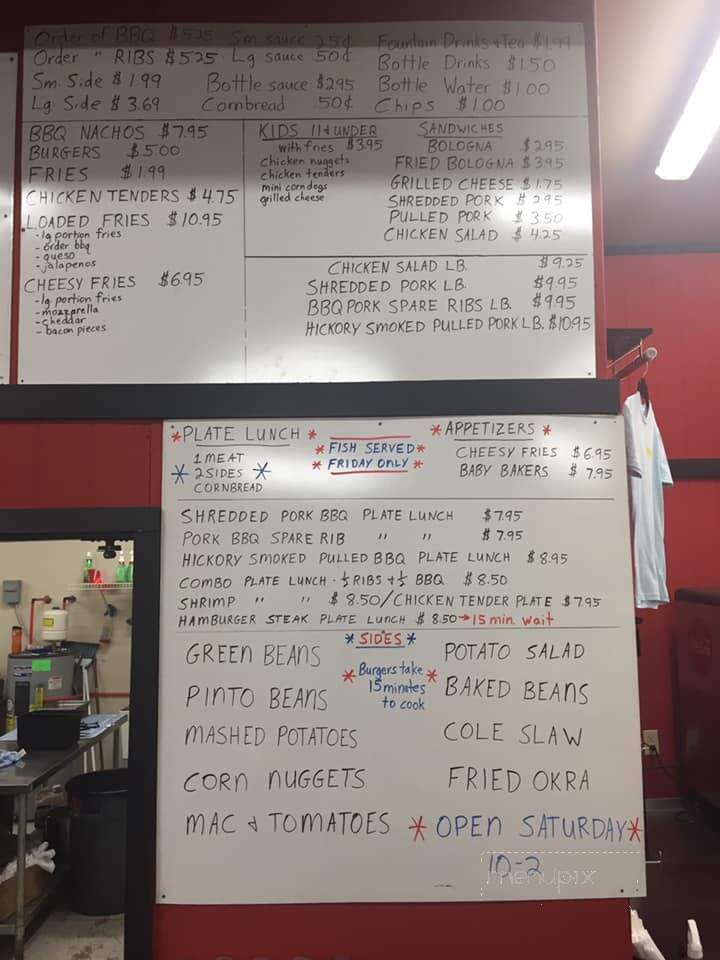 Order of BBQ $5.25 Sm sauce 25¢ Fountain Drinks + Tea $1.99
Order " RIBS $5.25 Lg sauce 50¢ Bottle Drinks $1.50
Sm Side $1.99 Bottle sauce $2.95 Bottle Water $1.00
Lg Side $3.69 Cornbread 50¢ Chips $1.00
BBQ NACHOS $7.95
BURGERS $5.00
FRIES $1.99
CHICKEN TENDERS $4.75
LOADED FRIES $10.95
- lg portion fries
- order bbq
- queso
- jalapenos
CHEESY FRIES $6.95
- lg portion fries
- mozzarella
- cheddar
- bacon pieces
KIDS 11 & UNDER
with fries $3.95
chicken nuggets
chicken tenders
mini corndogs
grilled cheese
SANDWICHES
BOLOGNA $2.95
FRIED BOLOGNA $3.95
GRILLED CHEESE $1.75
SHREDDED PORK $2.95
PULLED PORK $3.50
CHICKEN SALAD $4.25
CHICKEN SALAD LB. $9.25
SHREDDED PORK LB. $9.95
BBQ PORK SPARE RIBS LB. $9.95
HICKORY SMOKED PULLED PORK LB. $10.95
*PLATE LUNCH*
1 MEAT
*2 SIDES*
CORNBREAD
*FISH SERVED*
*FRIDAY ONLY*
*APPETIZERS*
CHEESY FRIES $6.95
BABY BAKERS $7.95
SHREDDED PORK BBQ PLATE LUNCH $7.95
PORK BBQ SPARE RIB " " $7.95
HICKORY SMOKED PULLED BBQ PLATE LUNCH $8.95
COMBO PLATE LUNCH - ½ RIBS + ½ BBQ $8.50
SHRIMP " " $8.50/CHICKEN TENDER PLATE $7.95
HAMBURGER STEAK PLATE LUNCH $8.50→15 min. wait
*SIDES*
GREEN BEANS
PINTO BEANS
MASHED POTATOES
CORN NUGGETS
MAC & TOMATOES
*Burgers take*
15 minutes
to cook
POTATO SALAD
BAKED BEANS
COLE SLAW
FRIED OKRA
*OPEN SATURDAY*
10-2
menupix